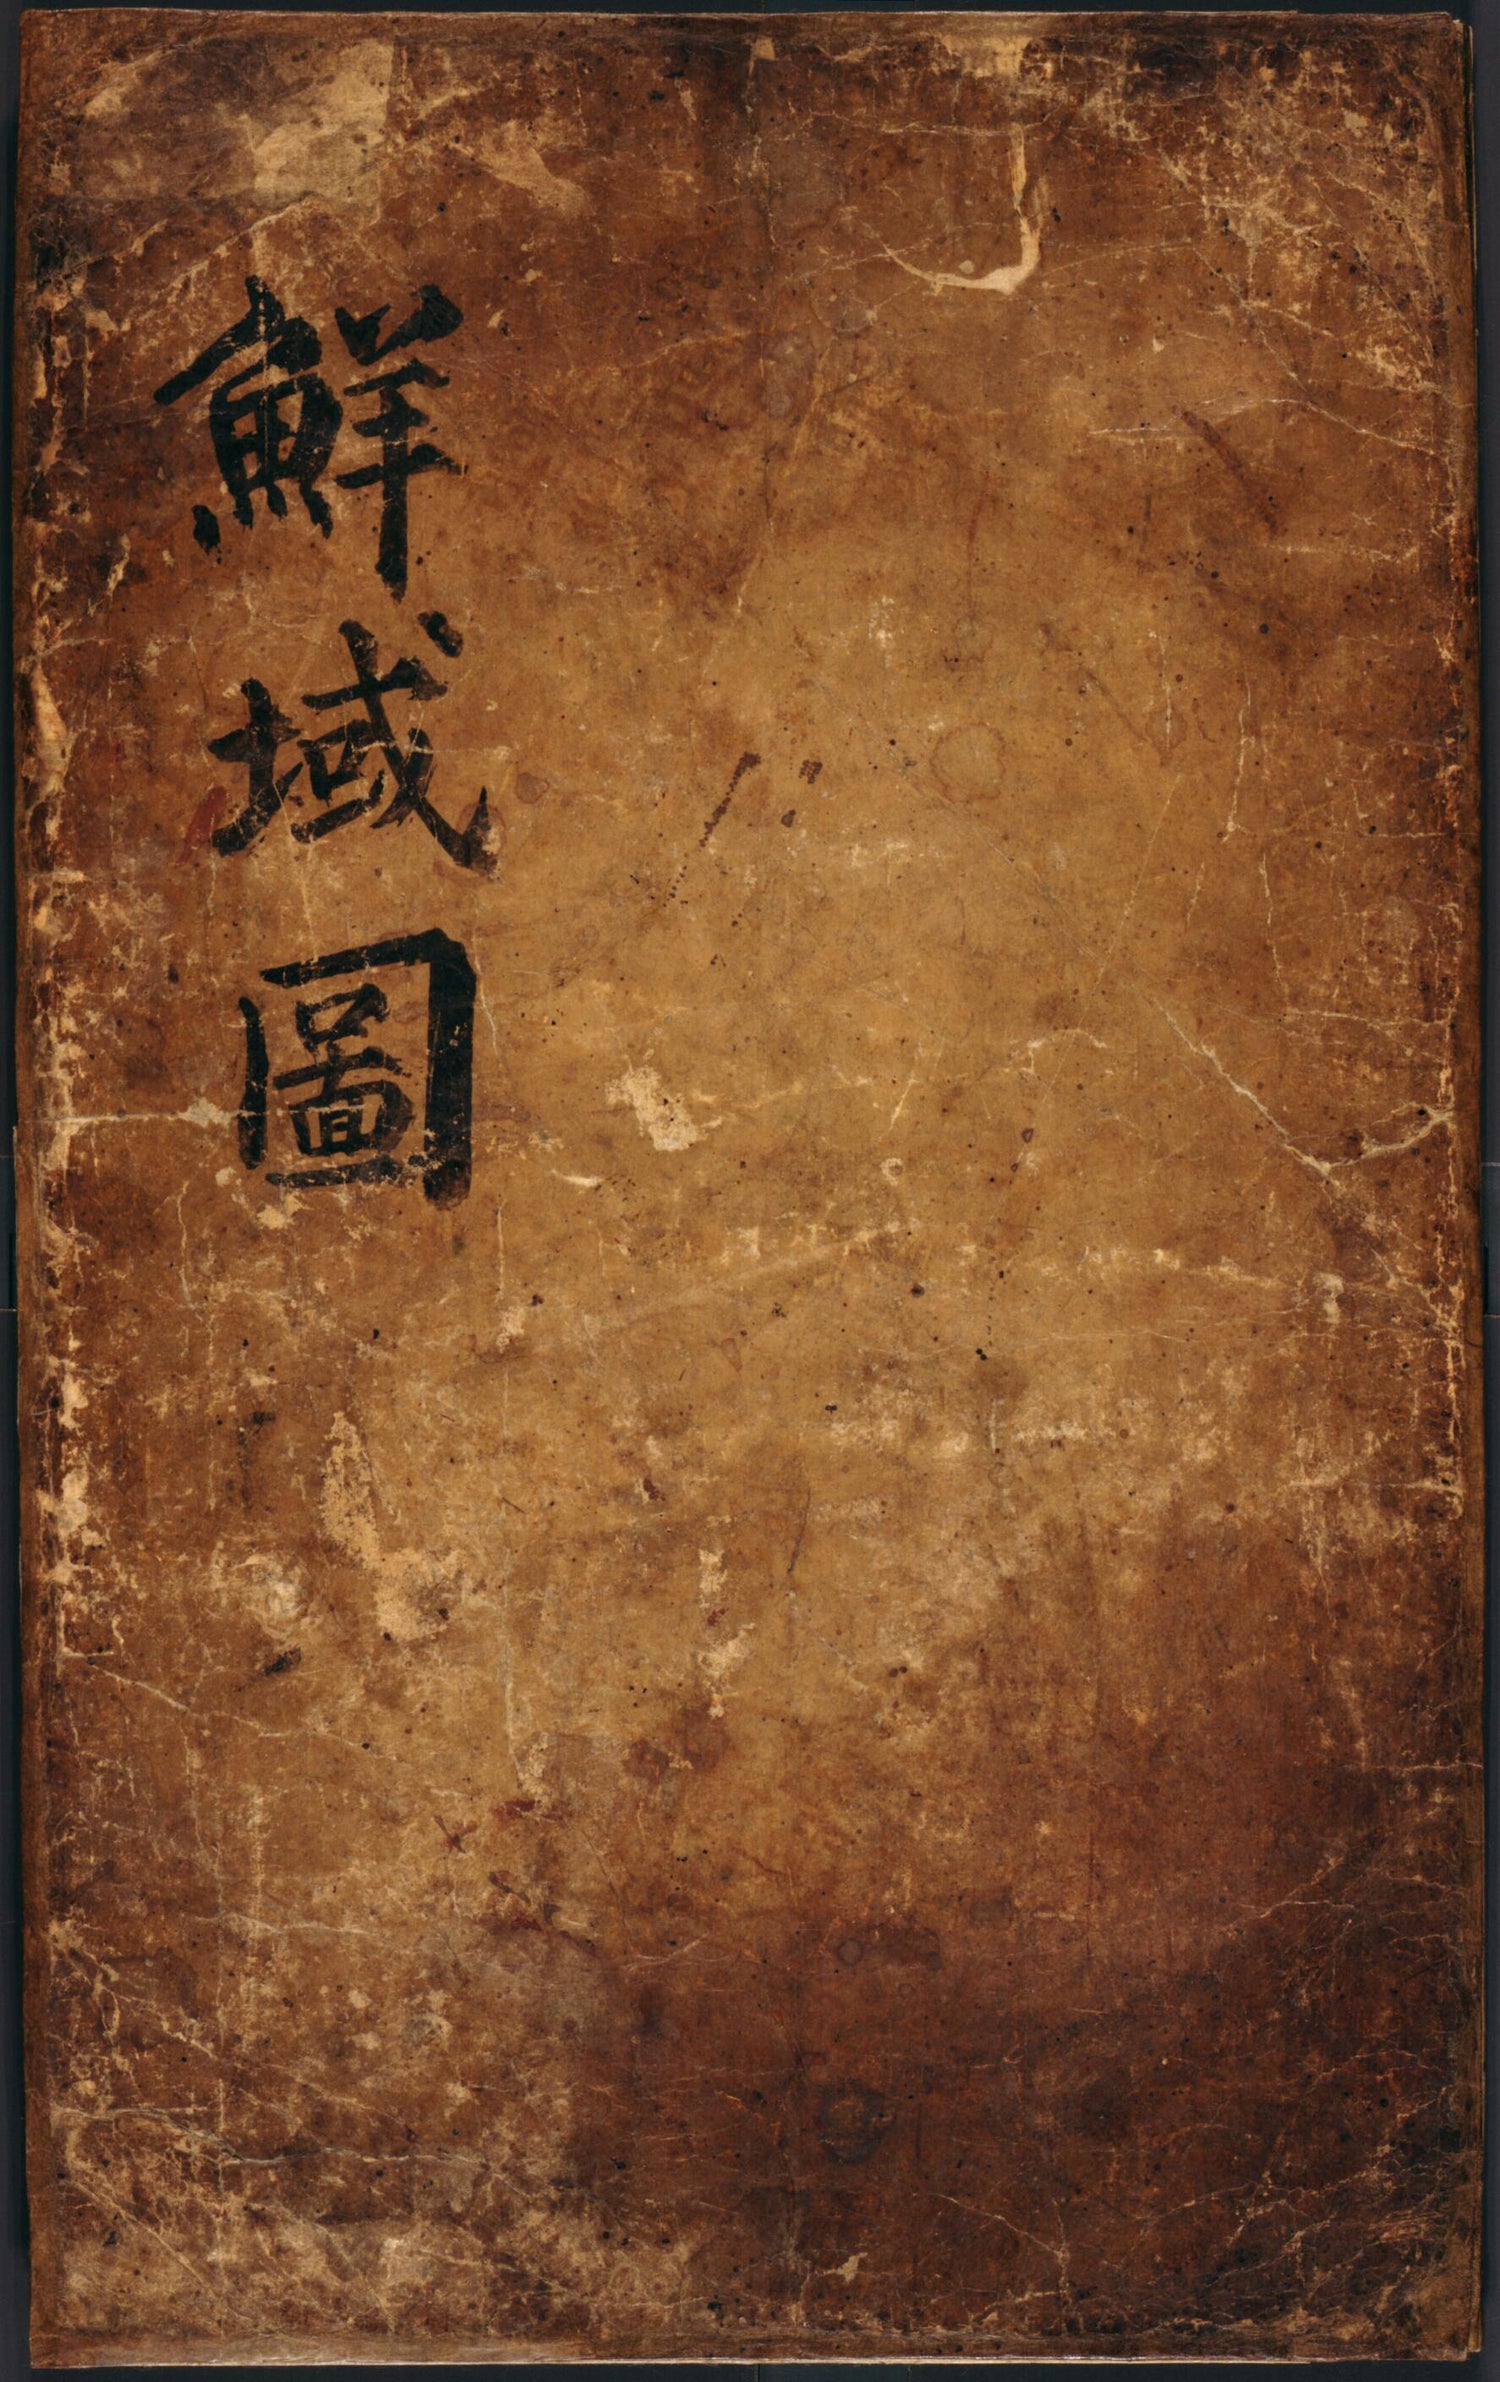 鮮域圖